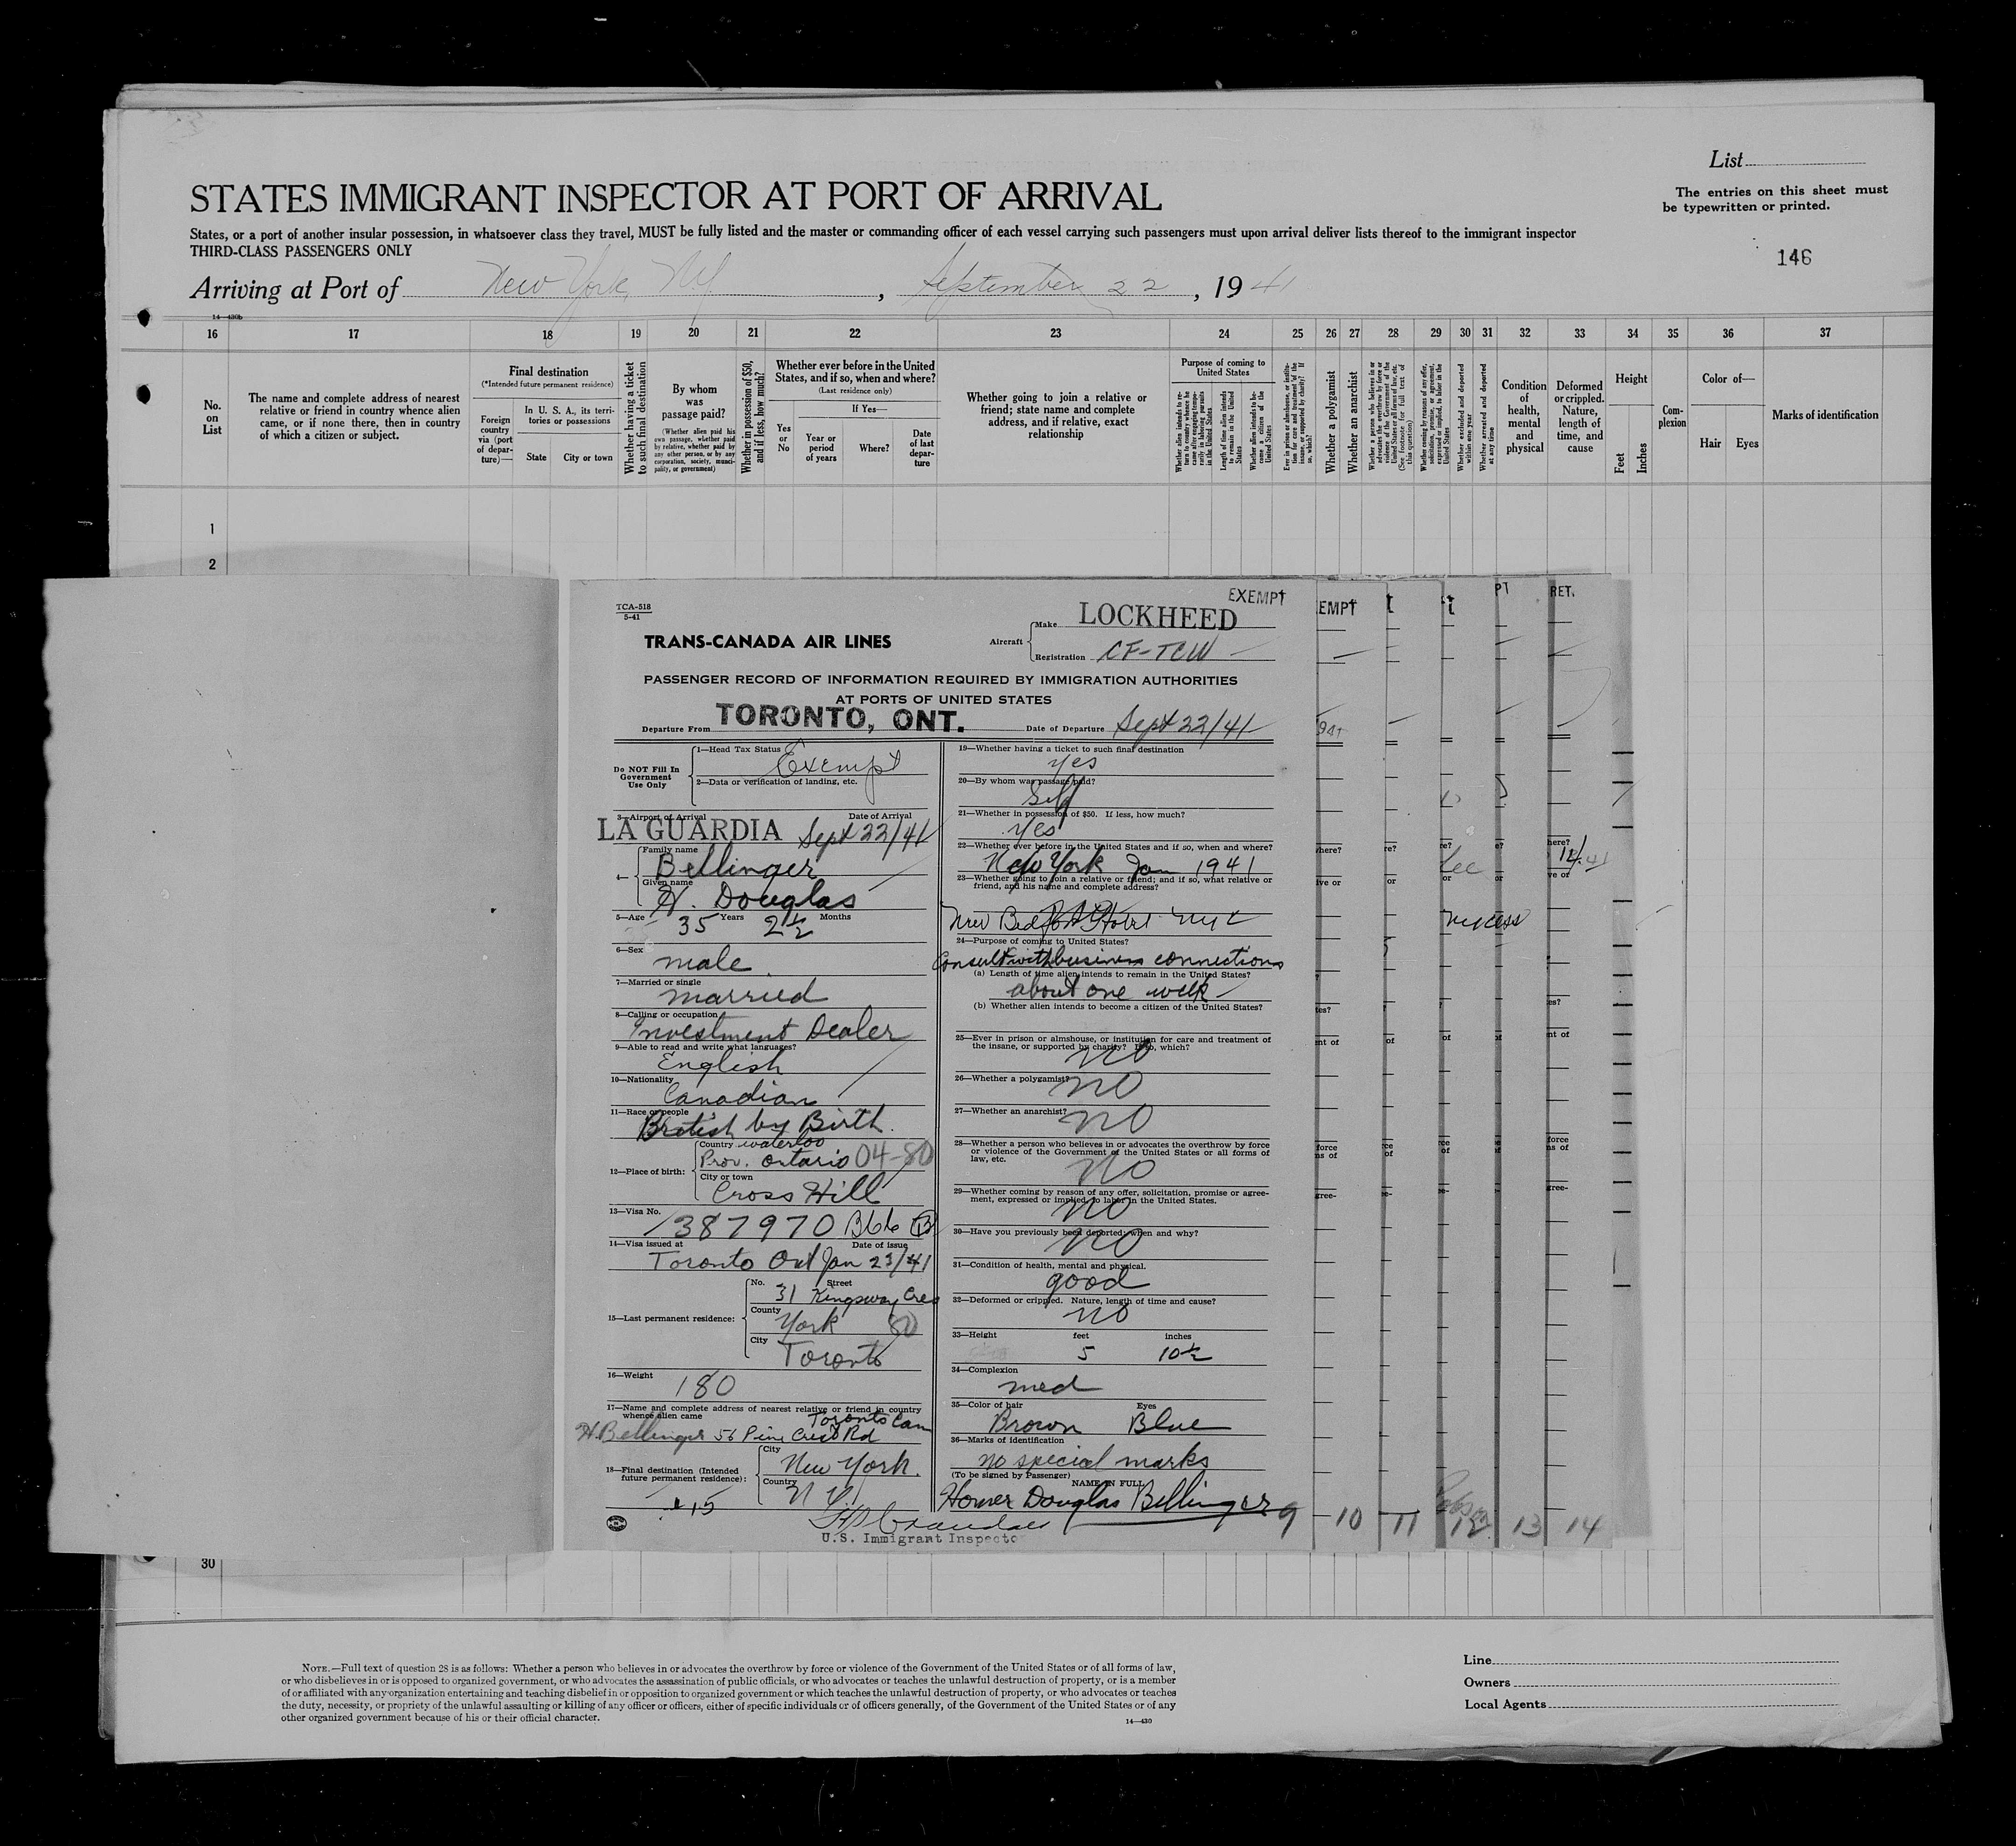 List
STATES IMMIGRANT INSPECTOR AT PORT OF ARRIVAL
The entries on this sheet must
be typewritten or printed.
States, or a port of another insular possession, in whatsoever class they travel, MUST be fully listed and the master or commanding officer of each vessel carrying such passengers must upon arrival deliver lists thereof to the immigrant inspector
THIRD-CLASS PASSENGERS ONLY
146
Arriving at Port of New York, NY, September 22, 1941
14—430b
16 17 18 19 20 21 22 23 24 25 26 27 28 29 30 31 32 33 34 35 36 37
No. on List
The name and complete address of nearest relative or friend in country whence alien came, or if none there, then in country of which a citizen or subject.
Final destination
(*Intended future permanent residence)
Foreign country via (port of departure)—
In U. S. A., its territories or possessions
State
City or town
Whether having a ticket to such final destination
By whom was passage paid?
(Whether alien paid his own passage, whether paid by relative, whether paid by any other person, or by any corporation, society, municipality, or government)
Whether in possession of $50, and if less, how much?
Whether ever before in the United States, and if so, when and where?
(Last residence only)
Yes or No
If Yes—
Year or period of years
Where?
Date of last departure
Whether going to join a relative or friend; state name and complete address, and if relative, exact relationship
Purpose of coming to United States
Whether alien intends to return to country whence he came after engaging temporarily in laboring pursuits in the United States
Length of time alien intends to remain in the United States
Whether alien intends to become a citizen of the United States
Ever in prison or almshouse, or institution for care and treatment of the insane, or supported by charity? If so, which?
Whether a polygamist
Whether an anarchist
Whether a person who believes in or advocates the overthrow by force or violence of the Government of the United States or all forms of law, etc. (See footnote for full text of this question)
Whether coming by reasons of any offer, solicitation, promise, or agreement, expressed or implied, to labor in the United States
Whether excluded and deported within one year
Whether arrested and deported at any time
Condition of health, mental and physical
Deformed or crippled. Nature, length of time, and cause
Height
Feet
Inches
Complexion
Color of—
Hair
Eyes
Marks of identification
1
2
TCA-518
5-41
EXEMPT
TRANS-CANADA AIR LINES
Aircraft
Make LOCKHEED
Registration CF-TCW
PASSENGER RECORD OF INFORMATION REQUIRED BY IMMIGRATION AUTHORITIES
AT PORTS OF UNITED STATES
Departure From TORONTO, ONT. Date of Departure Sept 22/41
Do NOT Fill In Government Use Only
1—Head Tax Status Exempt
2—Data or verification of landing, etc.
3—Airport of Arrival Date of Arrival
LA GUARDIA Sept 22/41
4— Family name
Bellinger
Given name
H. Douglas
5—Age 35 Years 2½ Months
6—Sex
male
7—Married or single
married
8—Calling or occupation
Investment Dealer
9—Able to read and write what languages?
English
10—Nationality
Canadian
11—Race or people
British by Birth.
12—Place of birth:
Country waterloo
Prov. ontario 04-80
City or town
Cross Hill
13—Visa No.
387970 B66 B
14—Visa issued at Date of issue
Toronto Ont Jan 23/41
15—Last permanent residence:
No. Street
31 Kingsway Cres
County
York 80
City
Toronto
16—Weight
180
17—Name and complete address of nearest relative or friend in country
whence alien came
Toronto Can
H. Bellinger 56 Pine Crest Rd
18—Final destination (Intended
future permanent residence):
City
New York.
Country
N Y
15
U.S. Immigrant Inspector
19—Whether having a ticket to such final destination
Yes
20—By whom was passage paid?
Self
21—Whether in possession of $50. If less, how much?
Yes
22—Whether ever before in the United States and if so, when and where?
New York Jan 1941
23—Whether going to join a relative or friend; and if so, what relative or
friend, and his name and complete address?
New Bedford Hotel NYC
24—Purpose of coming to United States?
Consult with business connections
(a) Length of time alien intends to remain in the United States?
about one week
(b) Whether alien intends to become a citizen of the United States?
25—Ever in prison or almshouse, or institution for care and treatment of
the insane, or supported by charity? If so, which?
no
26—Whether a polygamist?
no
27—Whether an anarchist?
no
28—Whether a person who believes in or advocates the overthrow by force
or violence of the Government of the United States or all forms of
law, etc.
no
29—Whether coming by reason of any offer, solicitation, promise or agree-
ment, expressed or implied, to labor in the United States.
no
30—Have you previously been deported; when and why?
no
31—Condition of health, mental and physical.
good
32—Deformed or crippled. Nature, length of time and cause?
no
33—Height feet inches
5 10½
34—Complexion
med
35—Color of hair Eyes
Brown Blue
36—Marks of identification
no special marks
(To be signed by Passenger)
NAME IN FULL
Homer Douglas Bellinger
9 10 11 12 13 14
30
NOTE.—Full text of question 28 is as follows: Whether a person who believes in or advocates the overthrow by force or violence of the Government of the United States or of all forms of law,
or who disbelieves in or is opposed to organized government, or who advocates the assassination of public officials, or who advocates or teaches the unlawful destruction of property, or is a member
of or affiliated with any organization entertaining and teaching disbelief in or opposition to organized government or which teaches the unlawful destruction of property, or who advocates or teaches
the duty, necessity, or propriety of the unlawful assaulting or killing of any officer or officers, either of specific individuals or of officers generally, of the Government of the United States or of any
other organized government because of his or their official character.
14—430
Line
Owners
Local Agents